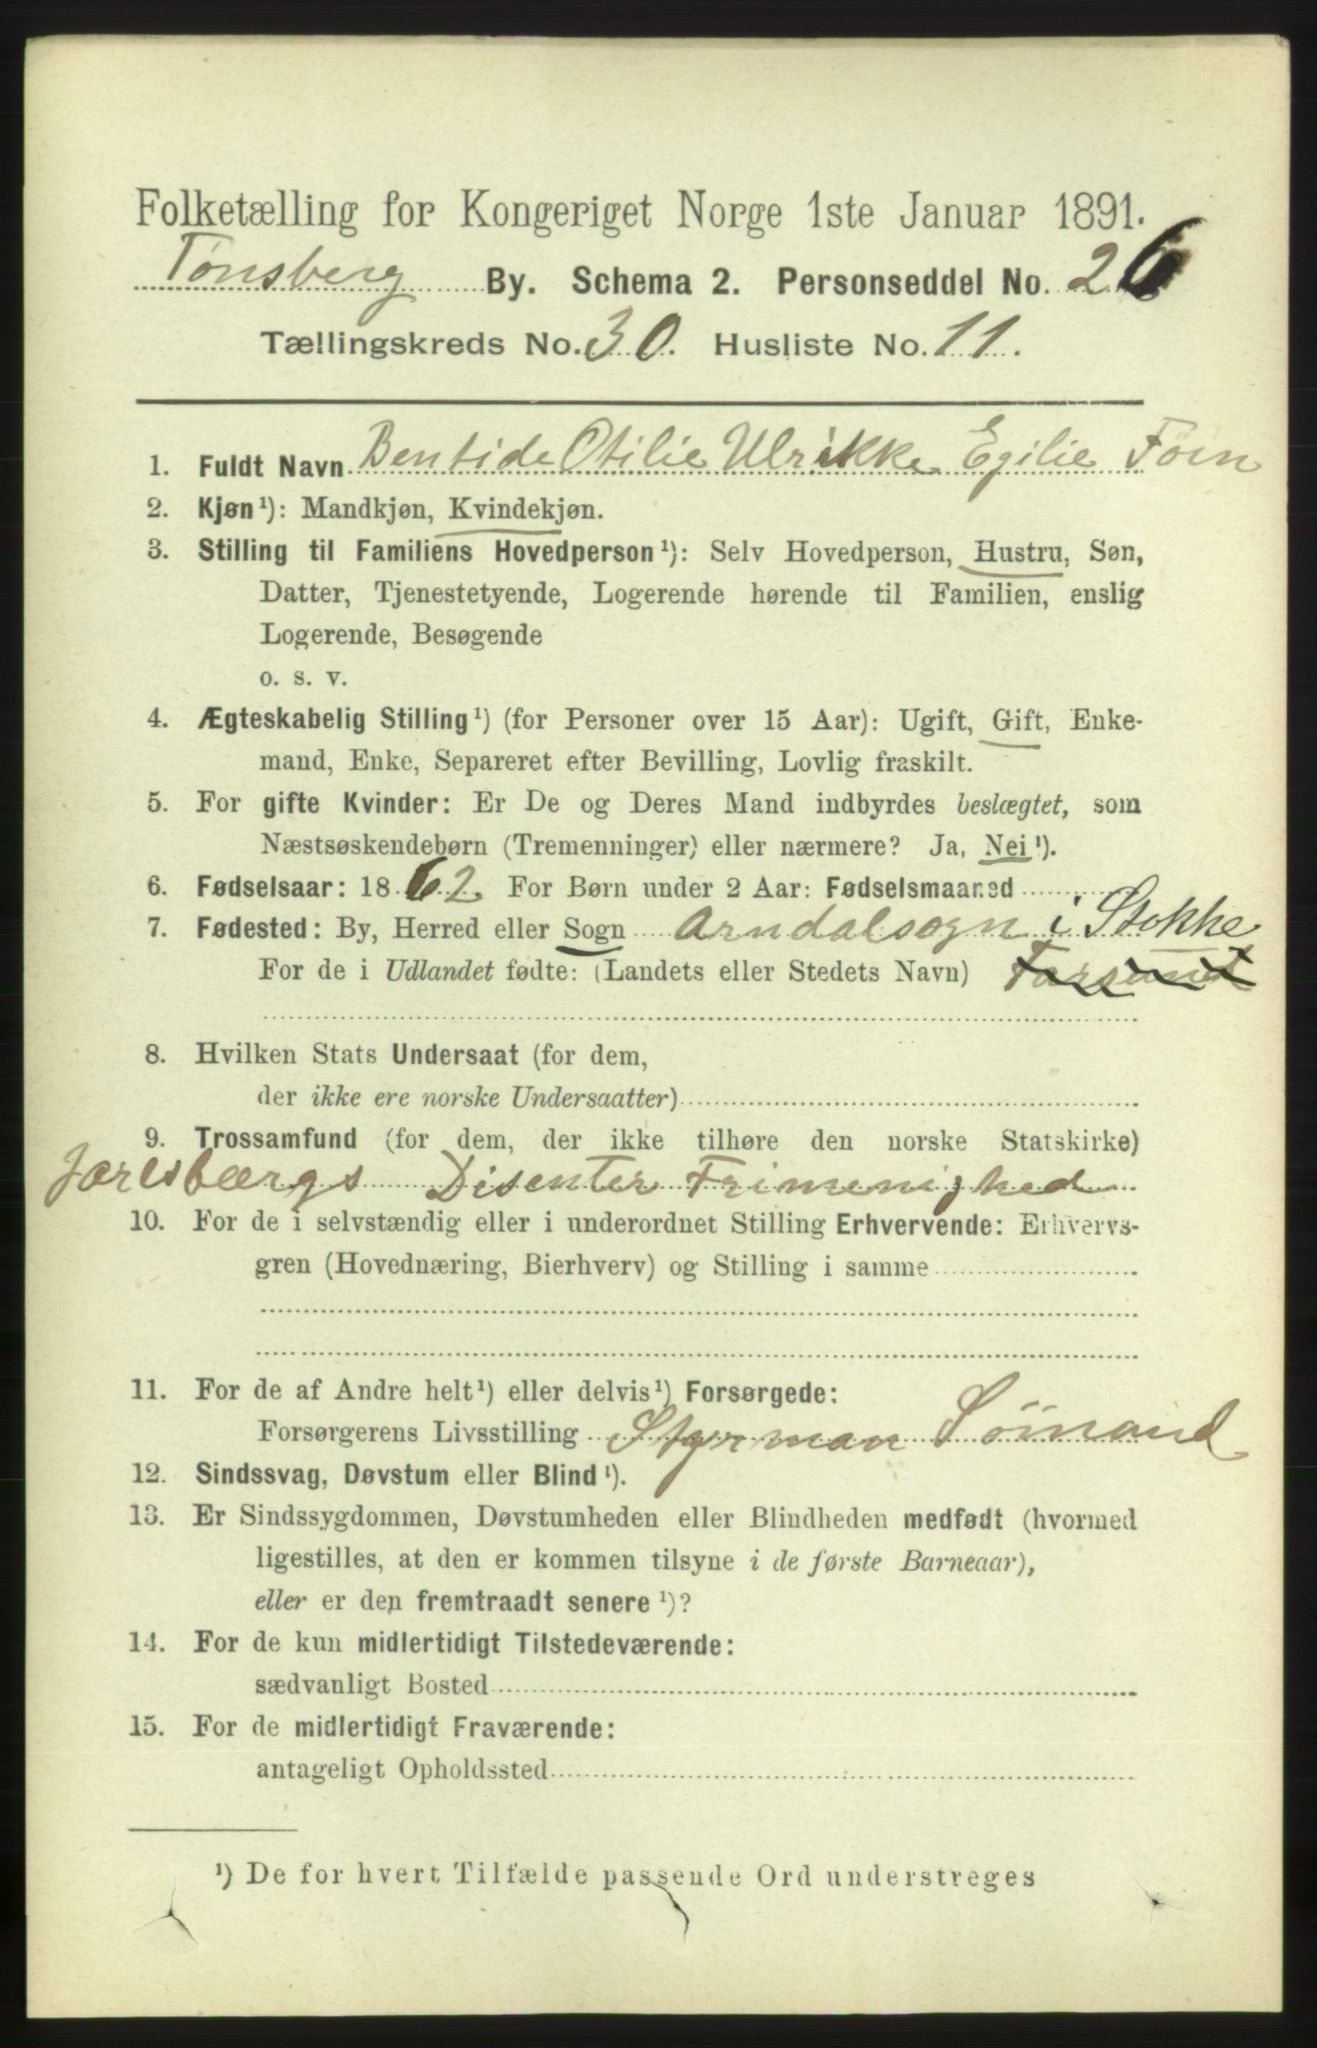 Folketælling for Kongeriget Norge 1ste Januar 1891.
Tønsberg By. Schema 2. Personseddel No. 26
Tællingskreds No. 30. Husliste No. 11.
1. Fuldt Navn Bentide Otilie Ulrikke Egilie Føin
2. Kjøn¹): Mandkjøn, Kvindekjøn.
3. Stilling til Familiens Hovedperson¹): Selv Hovedperson, Hustru, Søn,
Datter, Tjenestetyende, Logerende hørende til Familien, enslig
Logerende, Besøgende
o. s. v.
4. Ægteskabelig Stilling¹) (for Personer over 15 Aar): Ugift, Gift, Enke-
mand, Enke, Separeret efter Bevilling, Lovlig fraskilt.
5. For gifte Kvinder: Er De og Deres Mand indbyrdes beslægtet, som
Næstsøskendebørn (Tremenninger) eller nærmere? Ja, Nei¹).
6. Fødselsaar: 1862 For Børn under 2 Aar: Fødselsmaaned
7. Fødested: By, Herred eller Sogn Arndalsogn i Stokke
For de i Udlandet fødte: (Landets eller Stedets Navn) Farsund
8. Hvilken Stats Undersaat (for dem,
der ikke ere norske Undersaatter)
9. Trossamfund (for dem, der ikke tilhøre den norske Statskirke)
Jarlsbærgs Disenter Frimenighed
10. For de i selvstændig eller i underordnet Stilling Erhvervende: Erhvervs-
gren (Hovednæring, Bierhverv) og Stilling i samme
11. For de af Andre helt¹) eller delvis¹) Forsørgede:
Forsørgerens Livsstilling Styrman Søinand
12. Sindssvag, Døvstum eller Blind¹).
13. Er Sindssygdommen, Døvstumheden eller Blindheden medfødt (hvormed
ligestilles, at den er kommen tilsyne i de første Barneaar),
eller er den fremtraadt senere¹)?
14. For de kun midlertidigt Tilstedeværende:
sædvanligt Bosted
15. For de midlertidigt Fraværende:
antageligt Opholdssted
¹) De for hvert Tilfælde passende Ord understreges